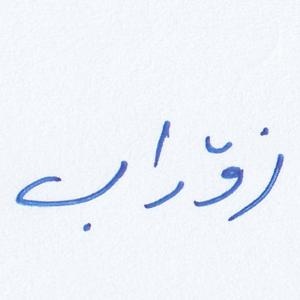 زوّراب